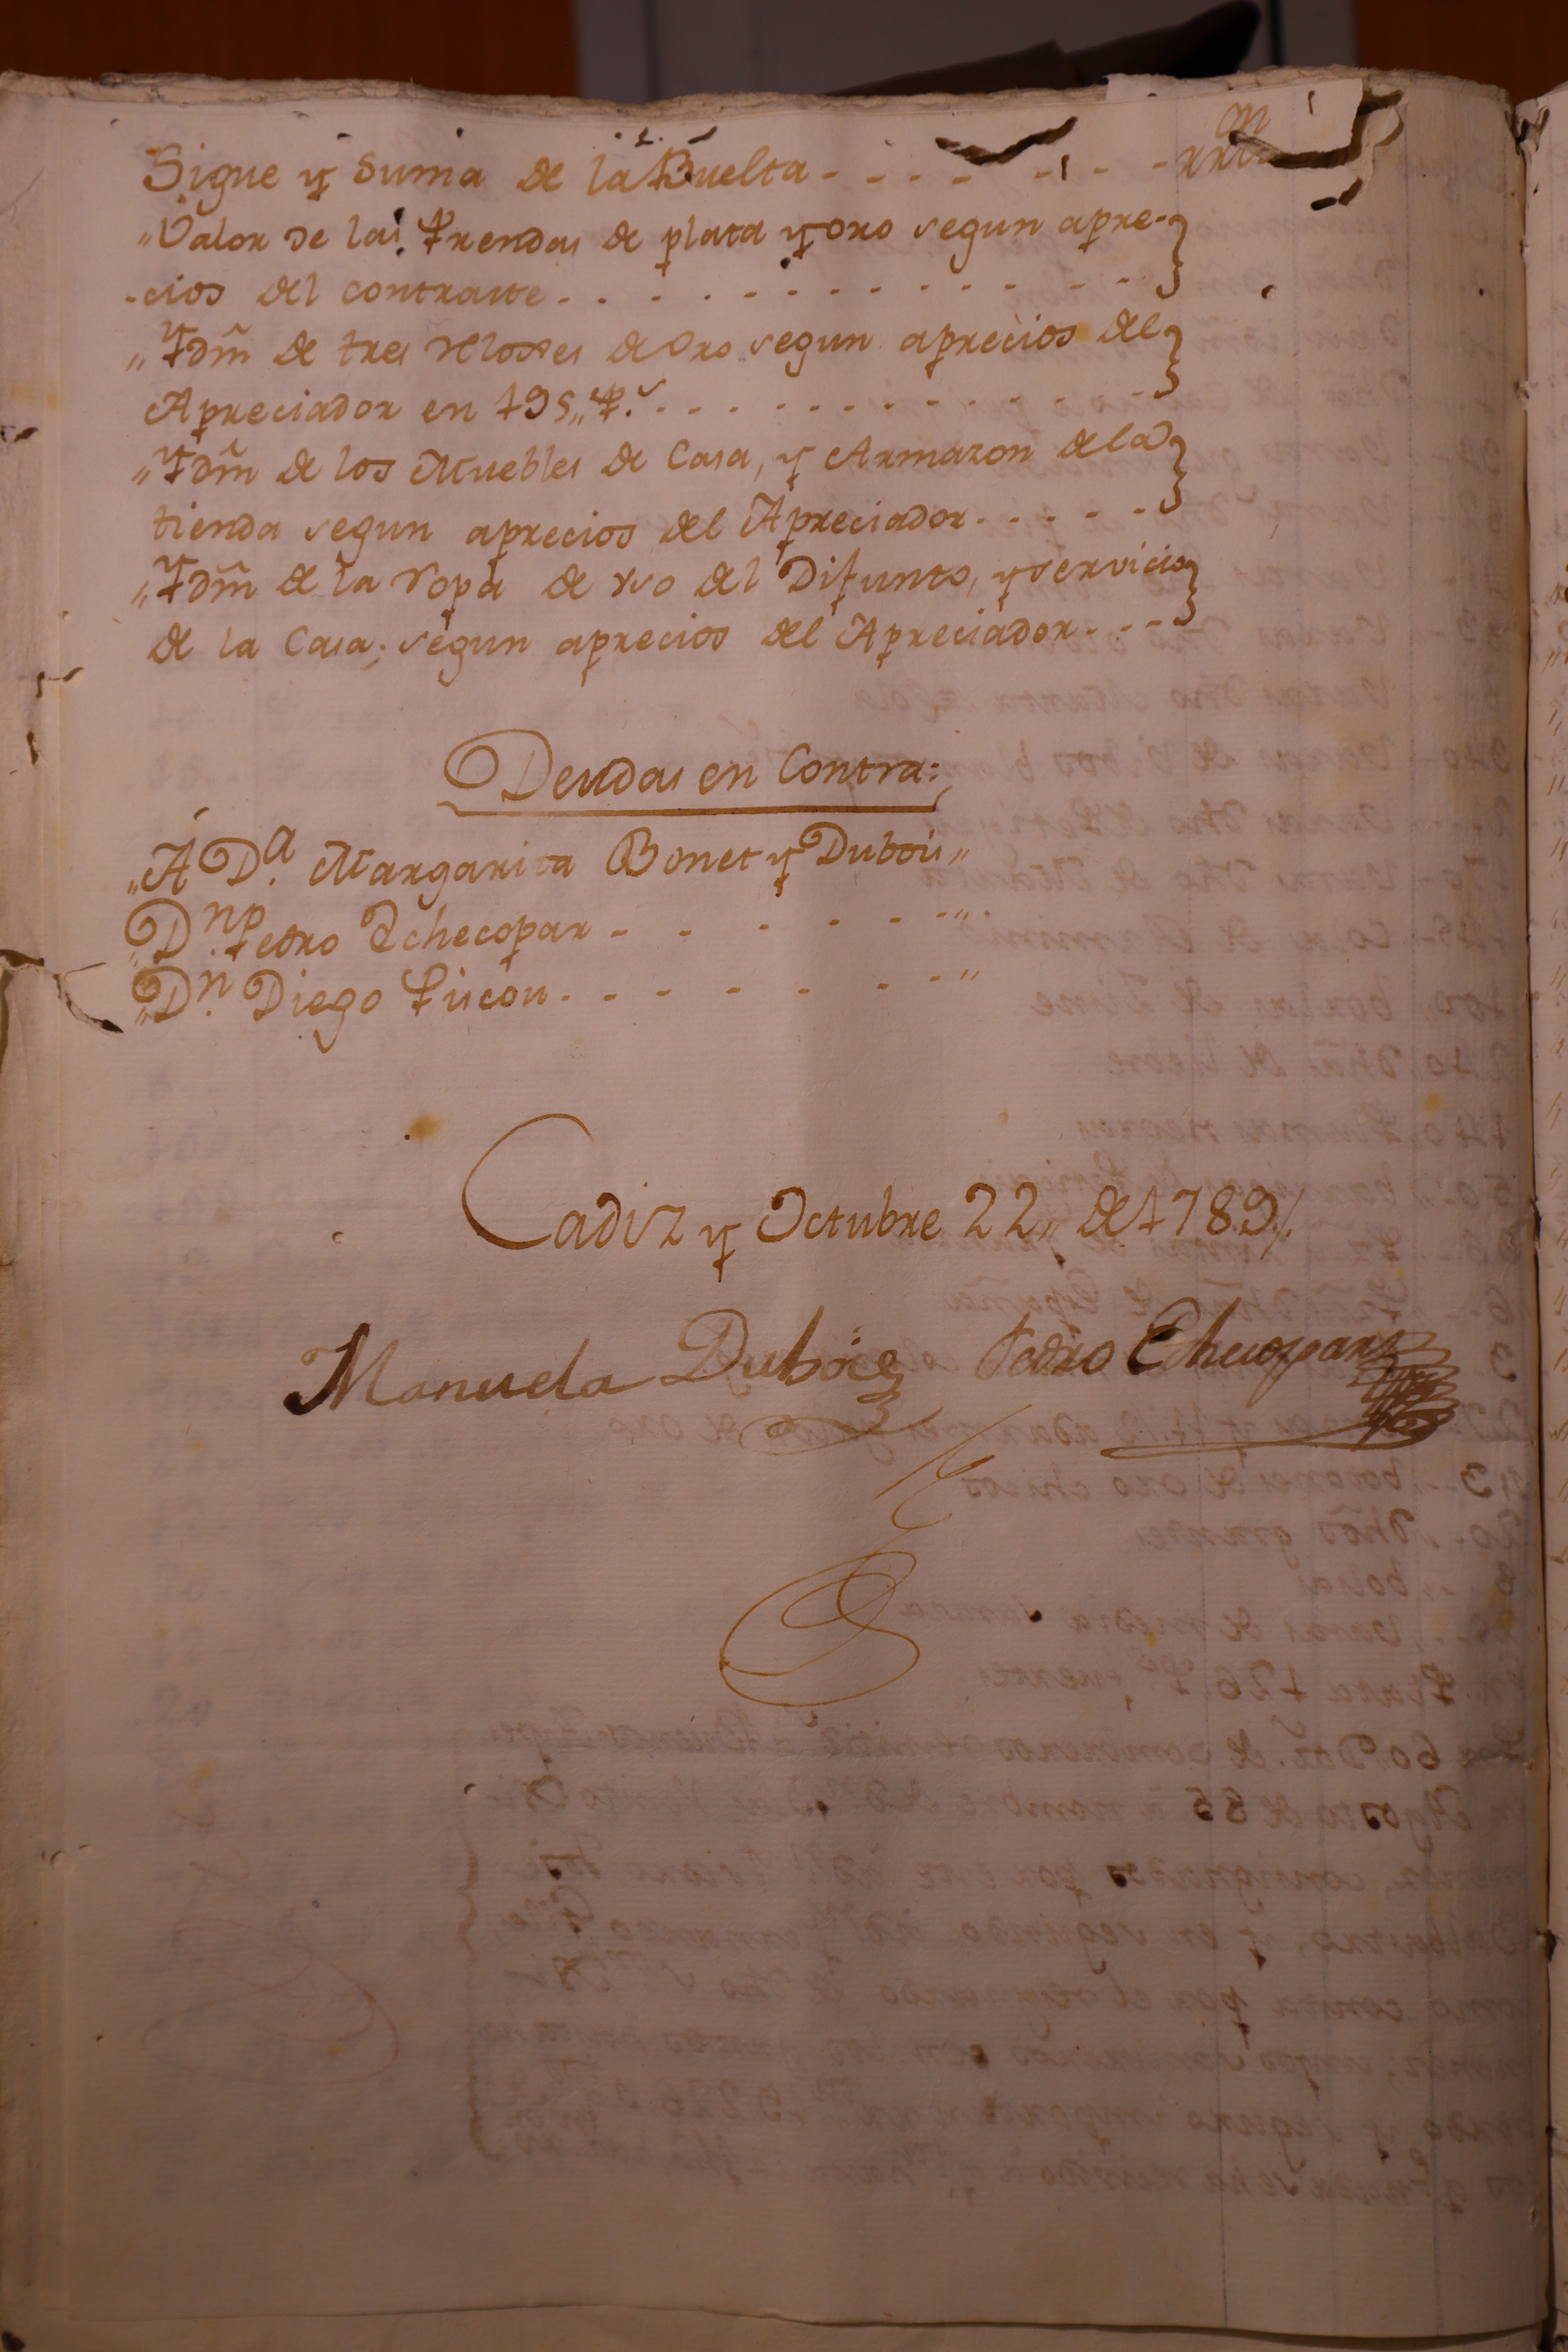 Sigue y Suma de la Buelta
„Valor de las Prendas de plata y oro segun apre-
-cios del contraste
„Ydm̃ de tres reloxes de Oro segun aprecios del
Apreciador en 195„ p.s
„Ydm̃ de los Muebles de Casa, y Armazon de la
tienda segun aprecios del Apreciador
„Ydm̃ de la ropa de vso del Difunto, y servicio
de la Casa; segun aprecios del Apreciador
Deudas en Contra:
„Á D.a Margarita Bonet y Dubois„
„D.n Pedro Echecopar „
„D.n Diego „
Cadiz y Octubre 22„ de 1789„
Manuela Dubois Pedro Echecopar